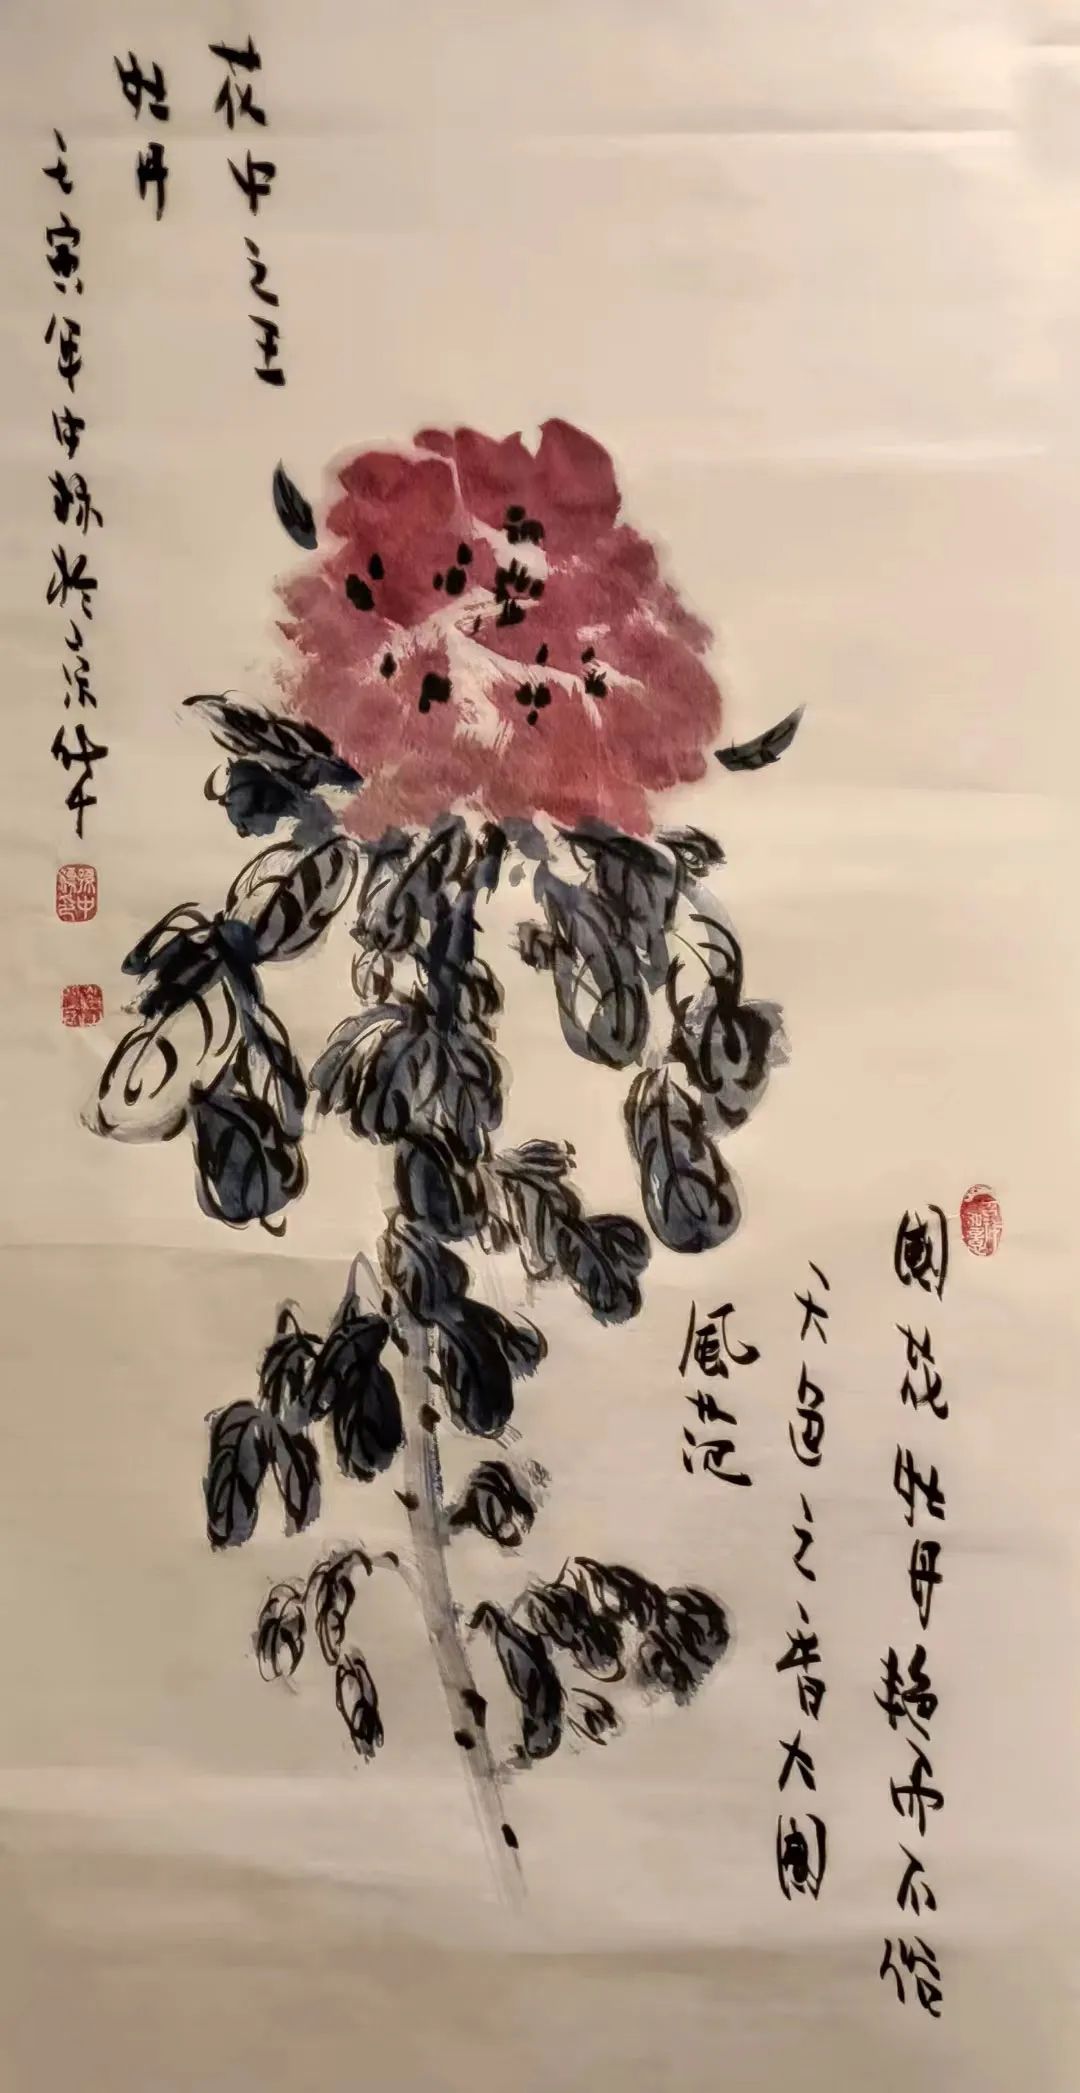 國花牡丹艳而不俗
天色之香大國
風范
花中之王
牡丹
壬寅年中於京华